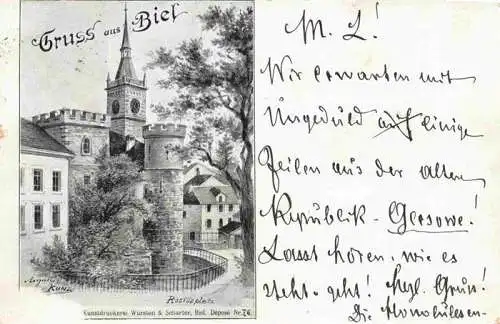 Gruss aus Biel
Rosiusplatz
Kunstdruckerei Wursten & Scharrer, Biel. Deposé Nr. 76
M. L!
Wir erwarten mit
Ungeduld auf einige
Zeilen aus der alten
Republik - Gersowe!
Lasst hören, wie es
steht - geht! Hzgl. Gruss!
Die